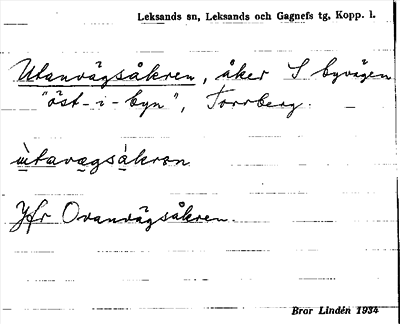 Leksands sn, Leksands och Gagnefs tg, Kopp. l.
Utanvägsåkren, åker S byvägen
"öst-i-byn", Torrberg.
ùtavægsàkrɘn
Jfr Ovanvägsåkren.
Bror Lindén 1934